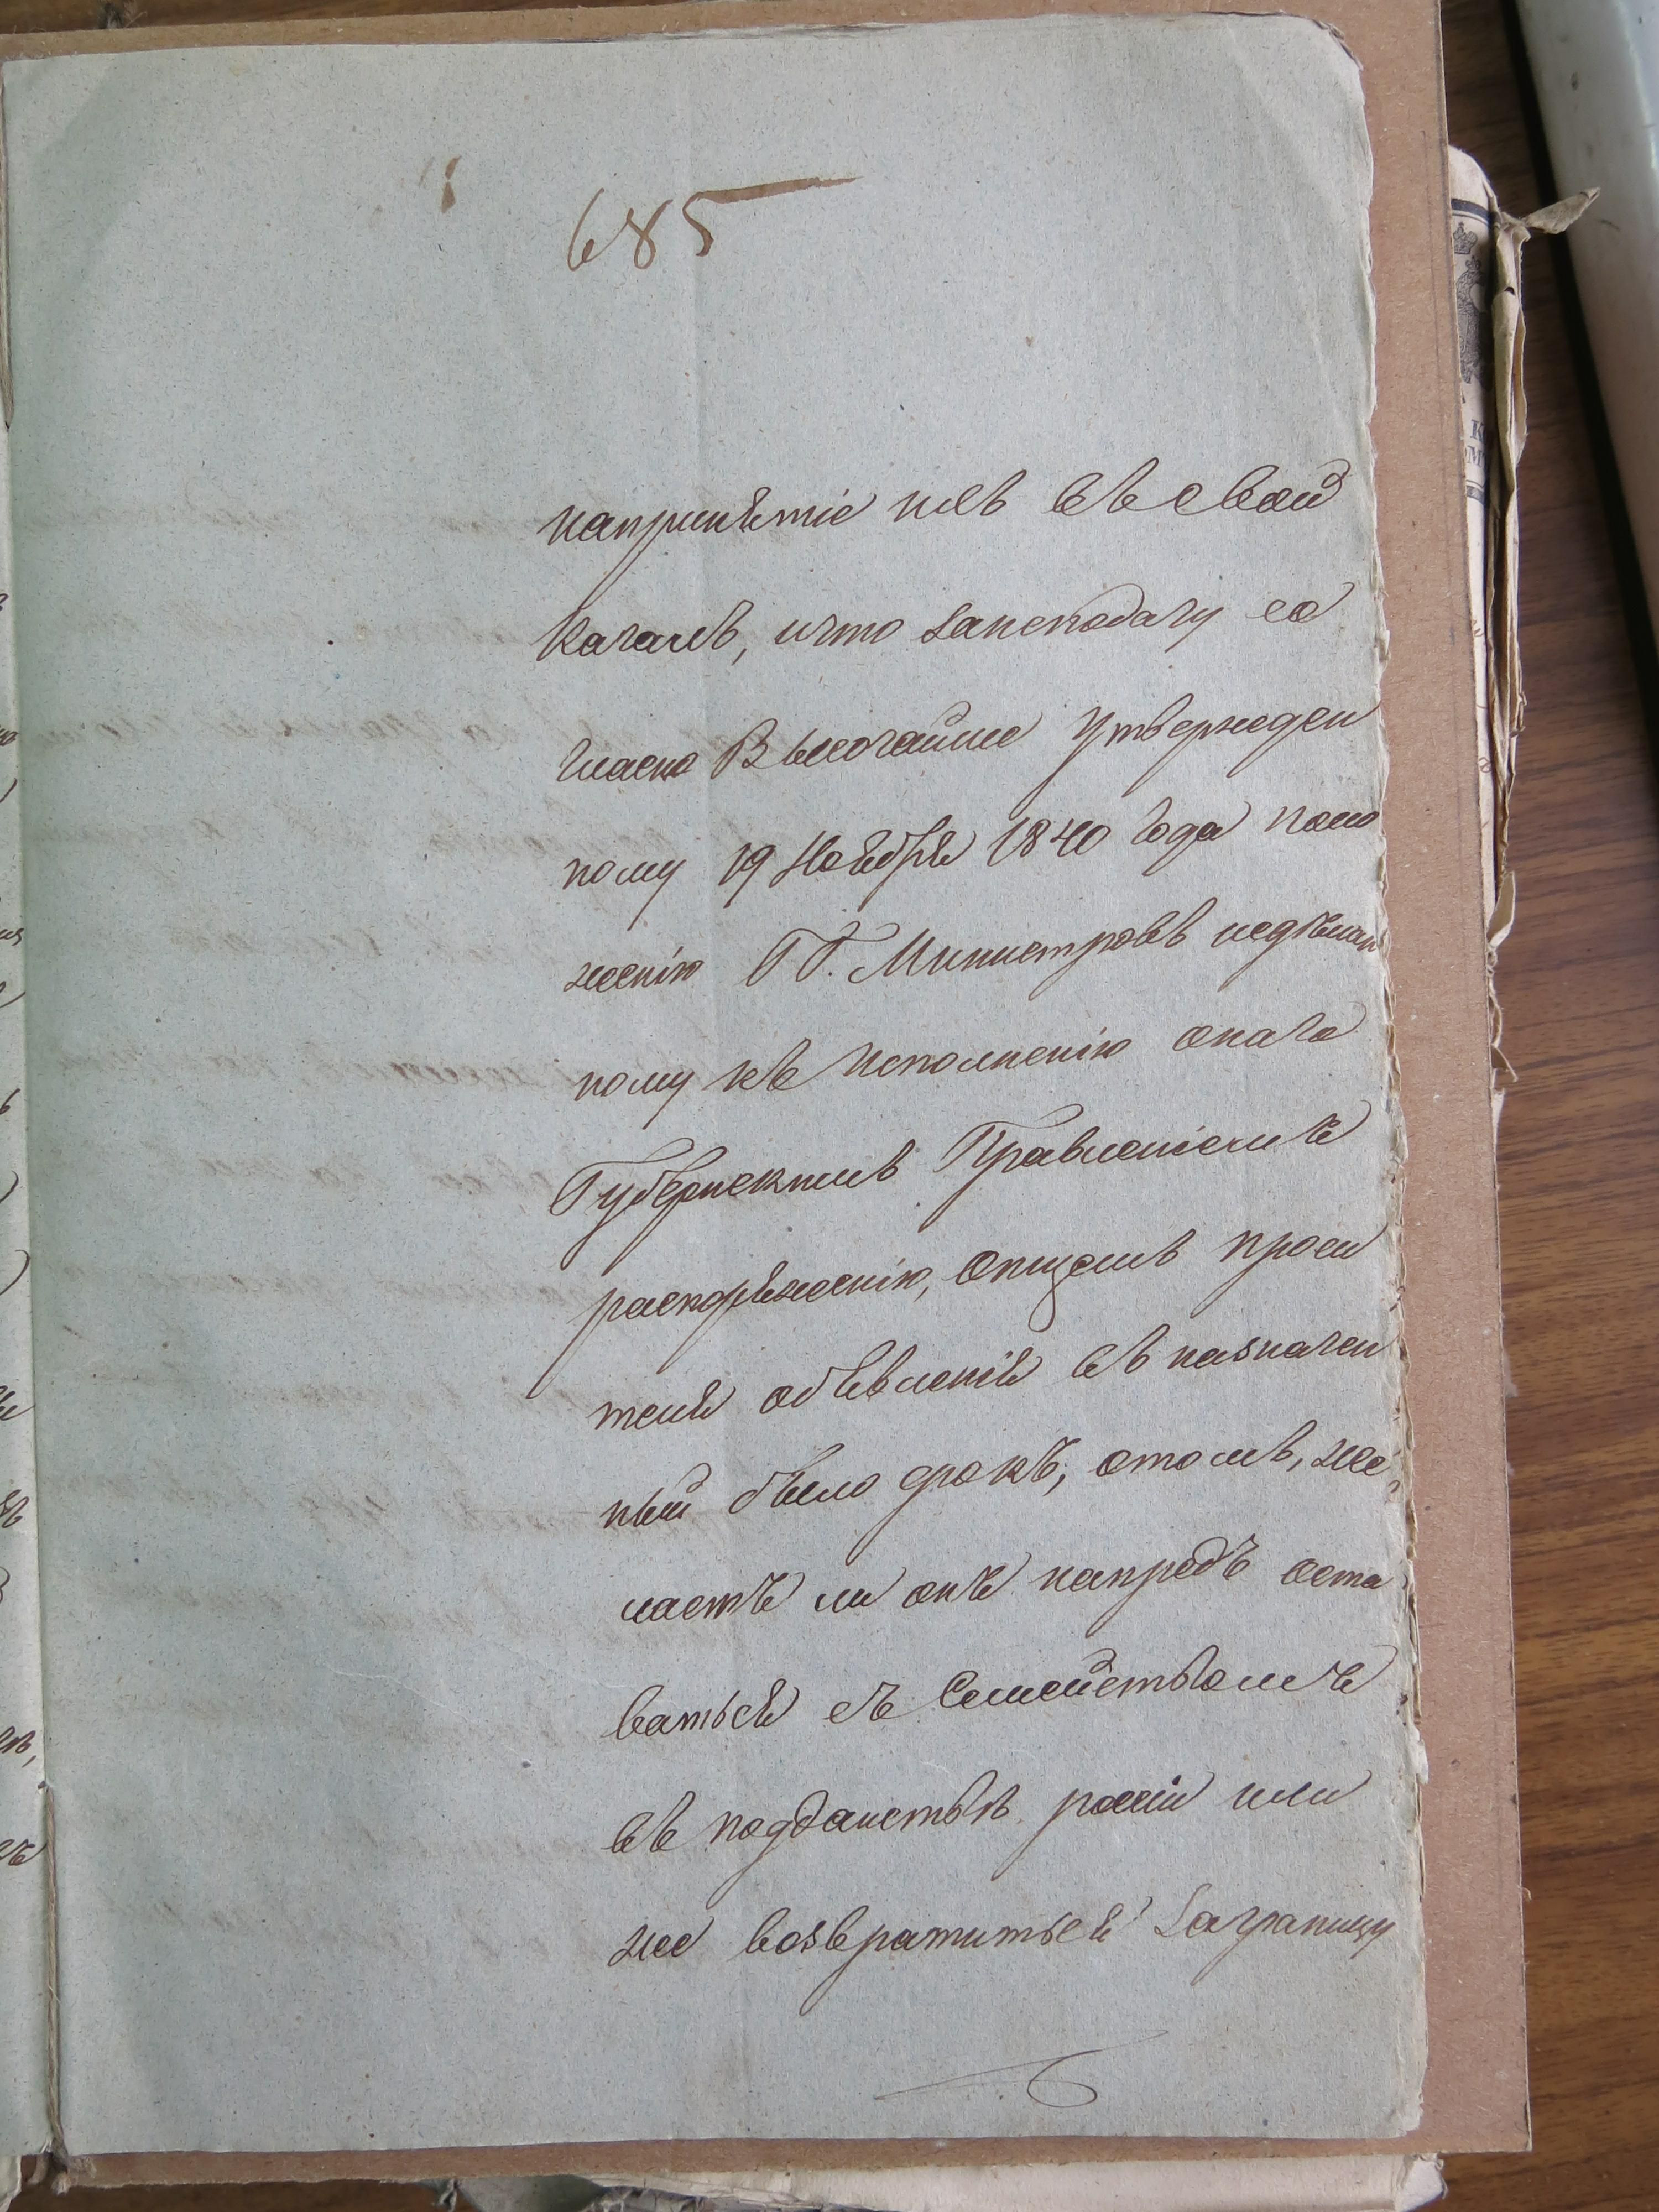 685
напринятіе ихъ въ свой
Кагалъ, ичто занеподачу со
гласно Высочайше Утвержден
ному 19 Ноября 1840 года поло
женію ГГ. Министровъ исдѣлан
ному къ Исполненію онаго
Губернскимъ Правленіемъ
распоряженію, онуземъ проси
телѣ объявленія въ назначен
ный было срокъ, отомъ, же
лаетъ ли онъ напредъ оста
ваться съ Семействомъ
въ подданствѣ россіи или
же возвратиться заграницу